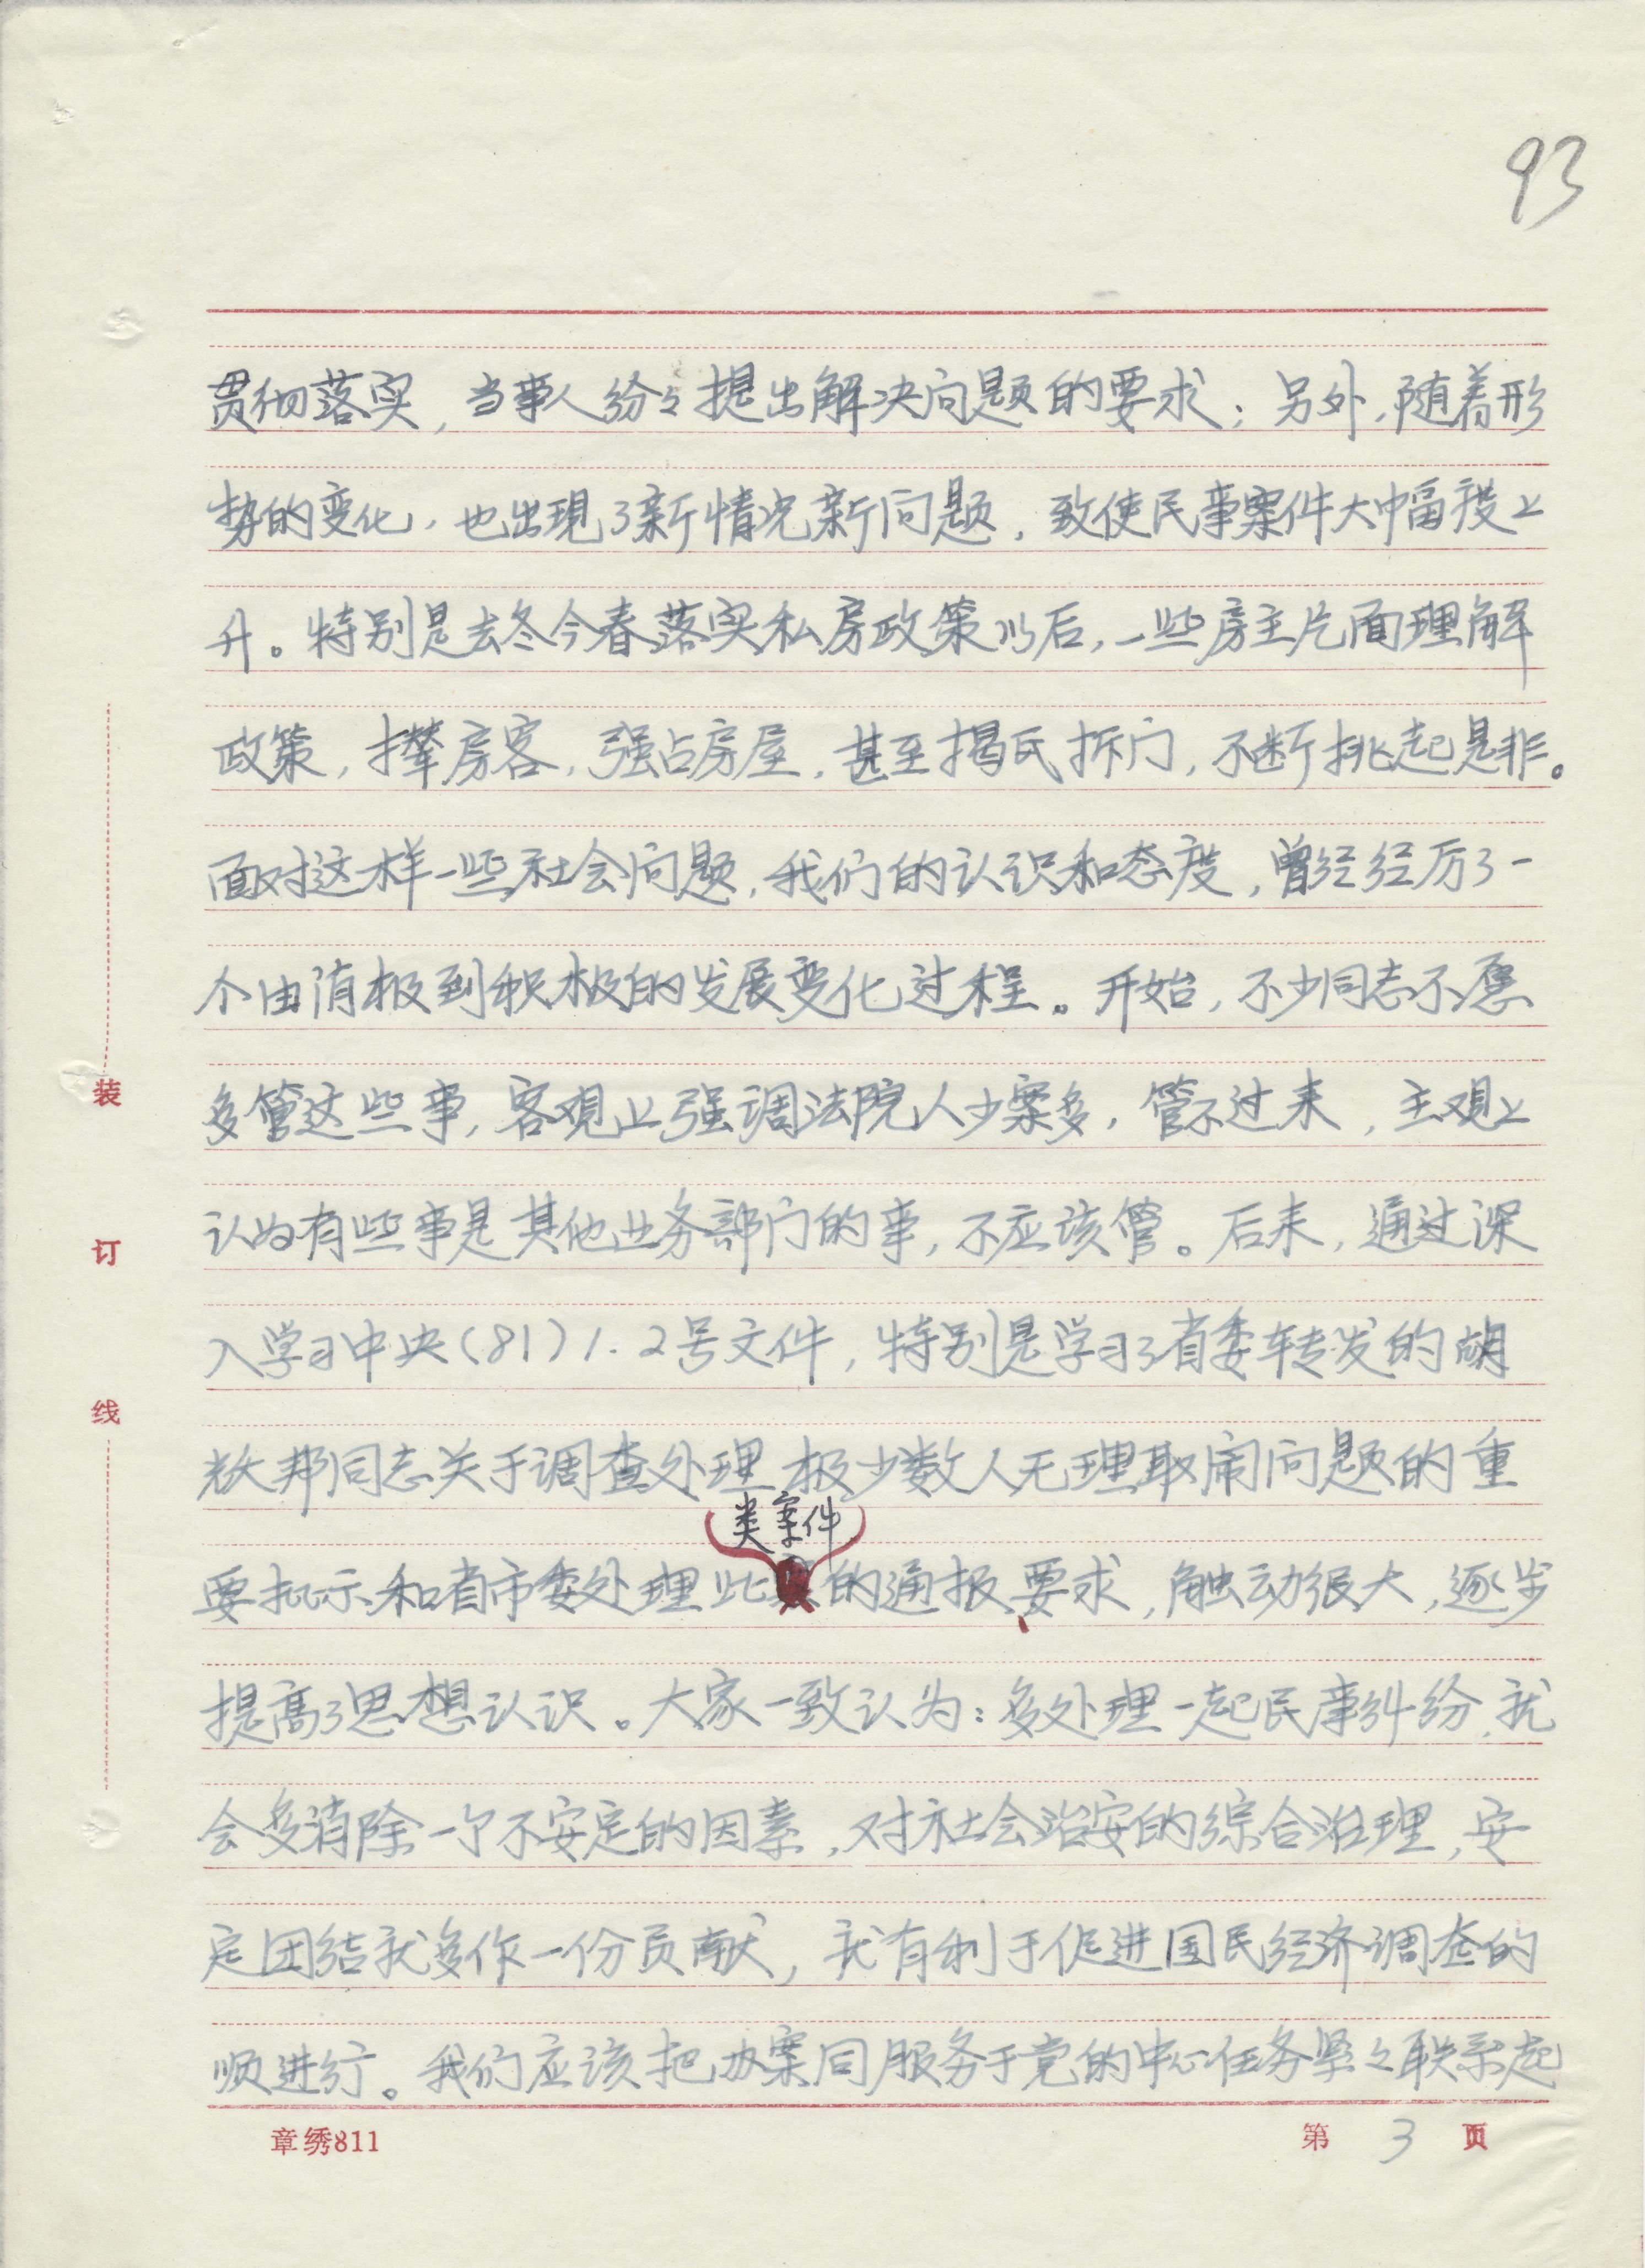 93
贯彻落实，当事人纷々提出解决问题的要求；另外，随着形
势的变化，也出现了新情况新问题，致使民事案件大幅度上
升。特别是去冬今春落实私房政策以后，一些房主片面理解
政策，撵房客，强占房屋，甚至揭瓦拆门，不断挑起是非。
面对这样一些社会问题，我们的认识和态度，曾经经历了一
个由消极到积极的发展变化过程。开始，不少同志不愿
多管这些事，客观上强调法院人少案多，管不过来，主观上
认为有些事是其他业务部门的事，不应该管。后来，通过深
入学习中央（81）1.2号文件，特别是学习了省委转发的胡
耀邦同志关于调查处理极少数人无理取闹问题的重
类案件
要批示和省市委处理此的通报、要求，触动很大，逐步
提高了思想认识。大家一致认为：多处理一起民事纠纷，就
会多消除一个不安定的因素，对社会治安的综合治理，安
定团结就多作一份贡献，就有利于促进国民经济调查的
顺进行。我们应该把办案同服务于党的中心任务紧々联系起
装
订
线
章绣811
第 3 页